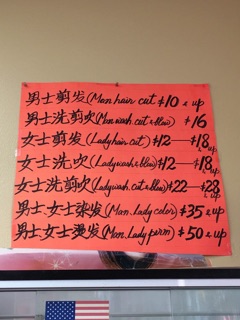 男士剪发(Man hair cut) $10 & up
男士洗剪吹(Man wash. cut & blew) $16
女士剪发(Lady hair cut) $12—$18 & up
女士洗吹(Lady wash & blew) $12—$18 & up
女士洗剪吹(Lady wash. cut & blew) $22—$28 & up
男士.女士染发(Man. Lady color) $35 & up
男士女士烫发(Man. Lady perm) $50 & up